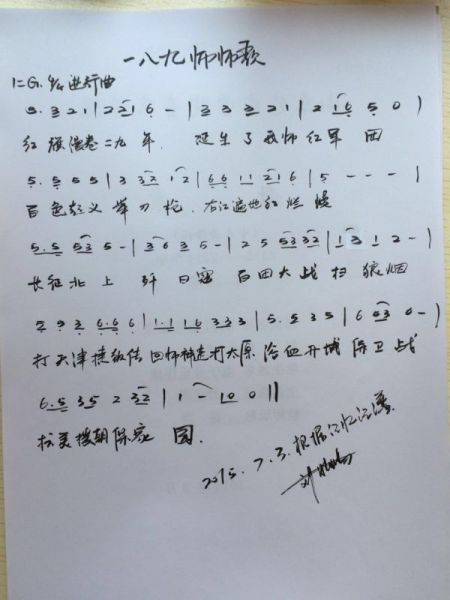 一八九师师歌
1=G 4/4 进行曲
5. 3 2 1 | 2 2 1 6 - | 3 3 3 2 1 | 2 1 6 5 0 |
红旗漫卷二九年. 诞生了我师红军团
5. 5 5 5 | 3 3 2 1 2 | 6 6 1 1 2 1 6 | 5 - - - |
百色起义举刀枪. 右江遍地红烂漫
5. 5 5 3 5 - | 3 6 3 5 - | 2 5 5 3 3 2 | 1 3 1 2 - |
长征北上歼日寇 百团大战扫狼烟
6 6 6 | 1. 1 1 6 3 3 3 | 5. 5 3 5 | 6 - |
打天津捷报传 回师猛打太原 浴血开城阵卫战
6. 5 3 5 2 3 2 | 1 - 1 0 0 ||
抗美援朝保家国.
2015. 7. 3. 根据记忆记谱
刘